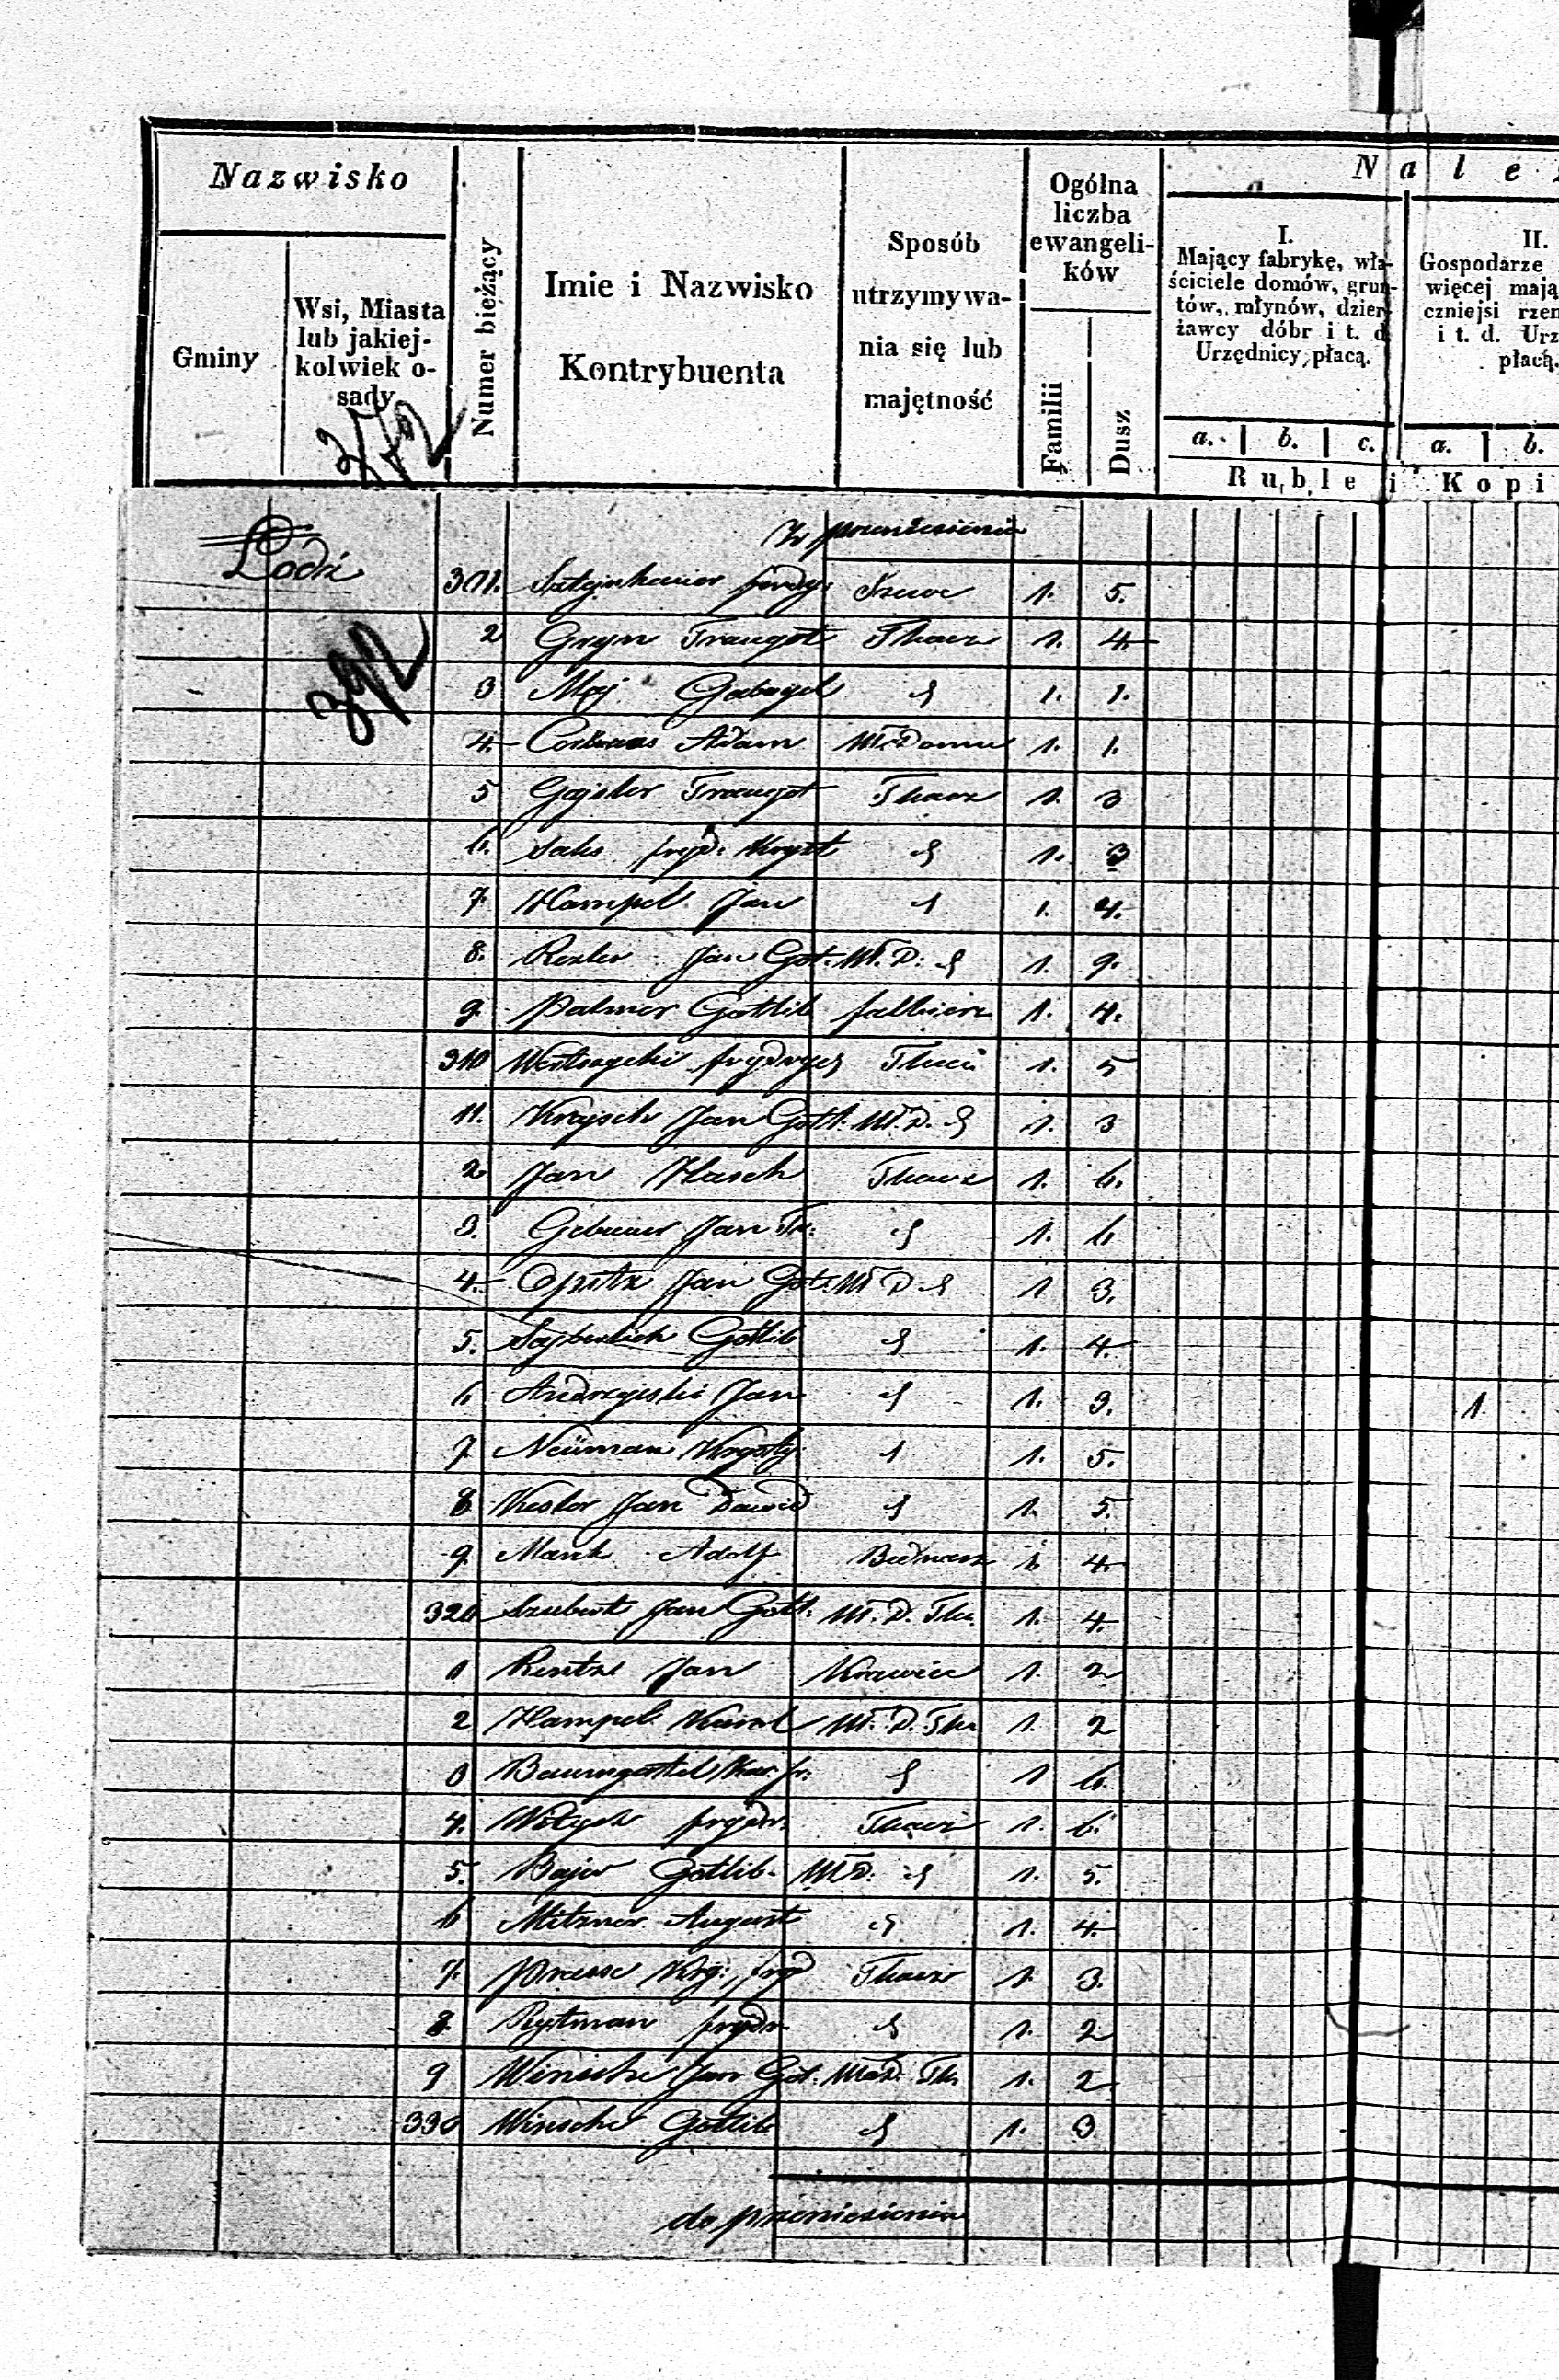 Nazwisko
Gminy
Wsi, Miasta
lub jakiej-
kolwiek o-
sady
Numer bieżący
Imie i Nazwisko
Kontrybuenta
Sposób
utrzymywa-
nia się lub
majętność
Ogólna
liczba
ewangeli-
ków
Familii
Dusz
N a l e
I.
Mający fabrykę, wła-
ściciele domów, grun-
tów, młynów, dzier-
żawcy dóbr i t. d.
Urzędnicy płacą.
a. b. c.
II.
Gospodarze
więcej mają
czniejsi rzem
i t. d. Urz
płacą.
a. b.
Ruble i Kopi
372
Łódź
392
Z przeniesienia
301. Sztejnhauer Szewc 1. 5.
2 Gryn Traugot Tkacz 1. 4
3 Maj Gabryel 1. 1.
4 Adam Wł. Domu 1. 1.
5 Gajsler Traugot Tkacz 1. 3
6. Saks fryd: Kryst 1. 3
7. Hampel Jan 1. 4.
8. Rezler Jan Got. Wł. D. 1. 9.
9 Palmer Gottlib falbierz 1. 4.
310 frydrych 1. 5
11. Krajsch Jan Gotl. Wł. D. 1. 3
2 Jan Hasch Tkacz 1. 6.
3. Gebauer Jan Tr: 1. 6
4. Opitz Jan Got. Wł D. 1 3.
5. Sajberlich Gotlib 1. 4.
6 Andrzejski Jan 1. 3. 1.
7 Neüman Krysty. 1. 5.
8 Kesler Jan Dawid 1. 5.
9 Mank Adolf Bednarz 1. 4
320 Szubert Jan Gotl. Wł. D. Tka. 1. 4.
1 Rentze Jan Krawiec 1. 2
2 Hampel Karol Wł. D. Tka 1. 2
3 Baumgertel Kar. fr. 1 6.
4. frydr. Tkacz 1. 6.
5. Bajer Gotlib. Wł D. 1. 5.
6 Mitzner August 1. 4
7. Prasse Kry: fryd Tkacz 1. 3.
8. Rytman frydr 1. 2
9 Winsche Jan Got. Wł. D. Tk. 1. 2
330 Winsche Gotlib 1. 3
do przeniesienia